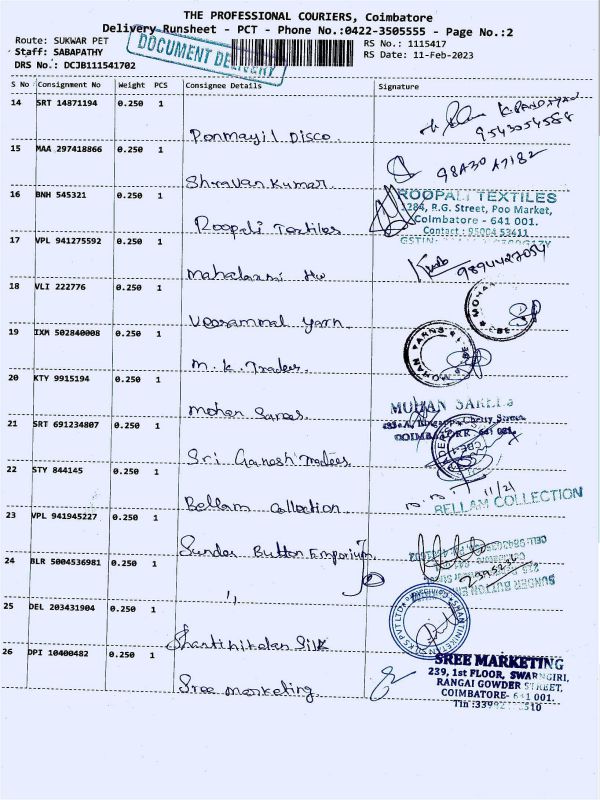 THE PROFESSIONAL COURIERS, Coimbatore
Delivery Runsheet - PCT - Phone No.:0422-3505555 - Page No.:2
Route: SUKWAR PET
RS No.: 1115417
Staff: SABAPATHY
RS Date: 11-Feb-2023
DOCUMENT DELIVERY
DRS No.: DCJB111541702
S No Consignment No Weight PCS Consignee Details Signature
14 SRT 14871194 0.250 1
Ponmayil Disco
9543054588
15 MAA 297418866 0.250 1
Shravan Kumar
16 BNH 545321 0.250 1
Roopali Textiles
ROOPALI TEXTILES
1284, R.G. Street, Poo Market,
Coimbatore - 641 001.
Contact: 95004 53411
GSTIN:
17 VPL 941275592 0.250 1
Mahalaxmi Hw
9894427054
18 VLI 222776 0.250 1
Veerammal yarn
MOHAN
19 IXM 502840008 0.250 1
M. K. Traders
MOHAN YARNS
20 KTY 9915194 0.250 1
Mohan Sarees
MOHAN SAREES
Street,
COIMBATORE 641 001.
21 SRT 691234807 0.250 1
Sri Ganesh Traders
22 STY 844145 0.250 1
Bellam Collection
11/21
BELLAM COLLECTION
23 VPL 941945227 0.250 1
Sundar Button Emporium
24 BLR 5004536981 0.250 1
"
2395236
SUNDER BUTTON
25 DEL 203431904 0.250 1
Shantiniketan Silk
SHANTINIKETAN SILKS PVT LTD
26 DPI 10400482 0.250 1
Sree Marketing
SREE MARKETING
239, 1st FLOOR, SWARNGIRI,
RANGAI GOWDER STREET,
COIMBATORE- 641 001.